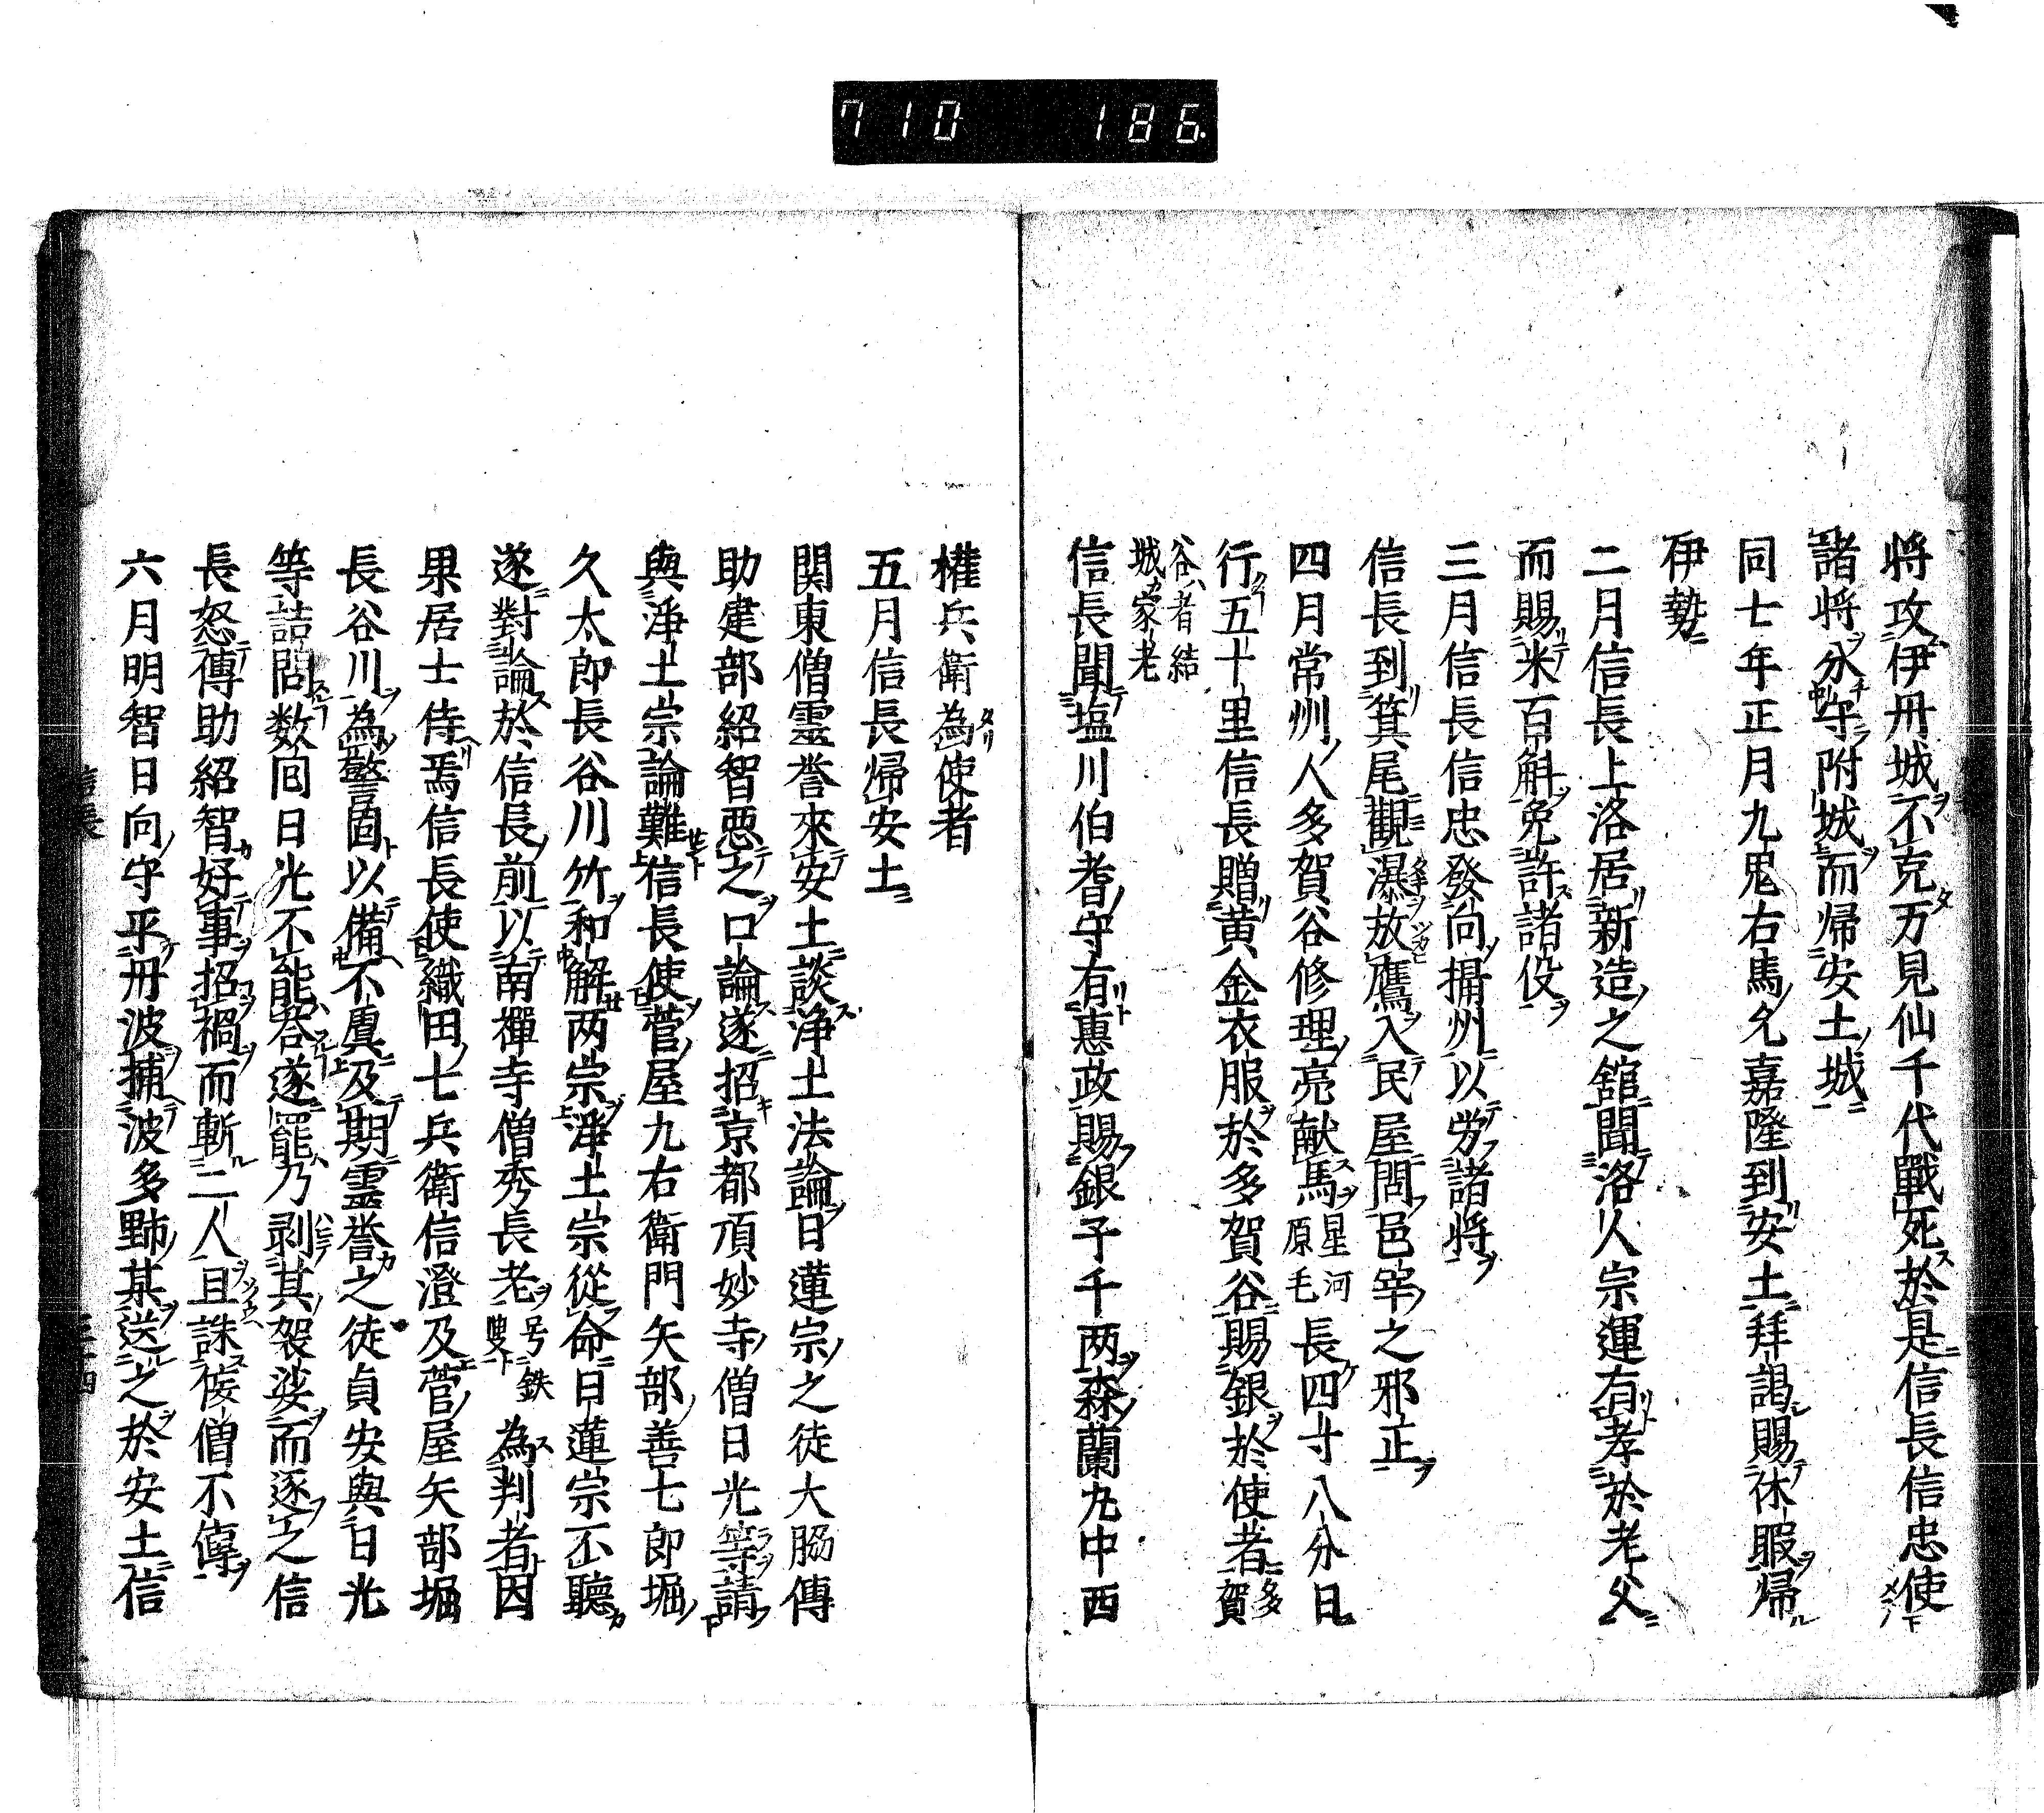 710 186.
将攻伊丹城不克万見仙千代戰死於是信長信忠使
諸将分守附城而帰安土城
同七年正月九鬼右馬允嘉隆到安土拜謁賜休暇帰
伊勢
二月信長上洛居新造之舘聞洛人宗運有孝於老父
而賜米百斛免許諸役
三月信長信忠發向攝州以労諸将
信長到箕尾觀瀑放鷹入民屋問邑宰之邪正
四月常州人多賀谷修理亮献馬星河原毛長四寸八分日
行五十里信長贈黄金衣服於多賀谷賜銀於使者多賀
谷者結城家老
信長聞塩川伯耆守有惠政賜銀子千两森蘭丸中西
權兵衛為使者
五月信長帰安土
関東僧霊誉來安土談浄土法論日蓮宗之徒大脇傳
助建部紹智惡之口論遂招京都頂妙寺僧日光等請
與浄土宗論難信長使菅屋九右衛門矢部善七郎堀
久太郎長谷川竹和解两宗浄土宗從命日蓮宗不聽
遂對論於信長前以南禪寺僧秀長老号鉄叟為判者因
果居士侍焉信長使織田七兵衛信澄及菅屋矢部堀
長谷川為警固以備不虞及期霊誉之徒貞安與日光
等詰問数囘日光不能答遂罷乃剥其袈裟而逐之信
長怒傳助紹智好事招禍而斬二人且誅侫僧不傳
六月明智日向守平丹波捕波多野某送之於安土信
信長
三十四